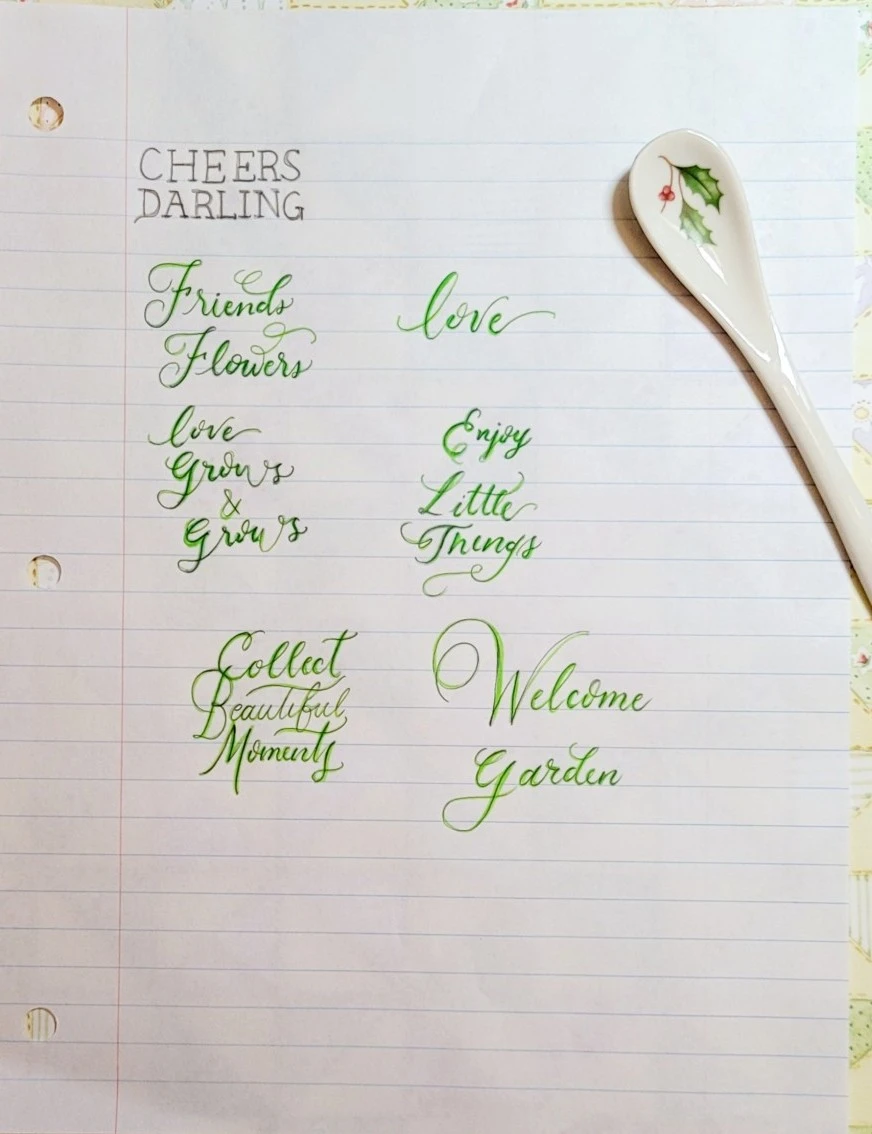 CHEERS
DARLING
Friends
Flowers
love
love
Grows
&
Grows
Enjoy
Little
Things
Collect
Beautiful
Moments
Welcome
Garden